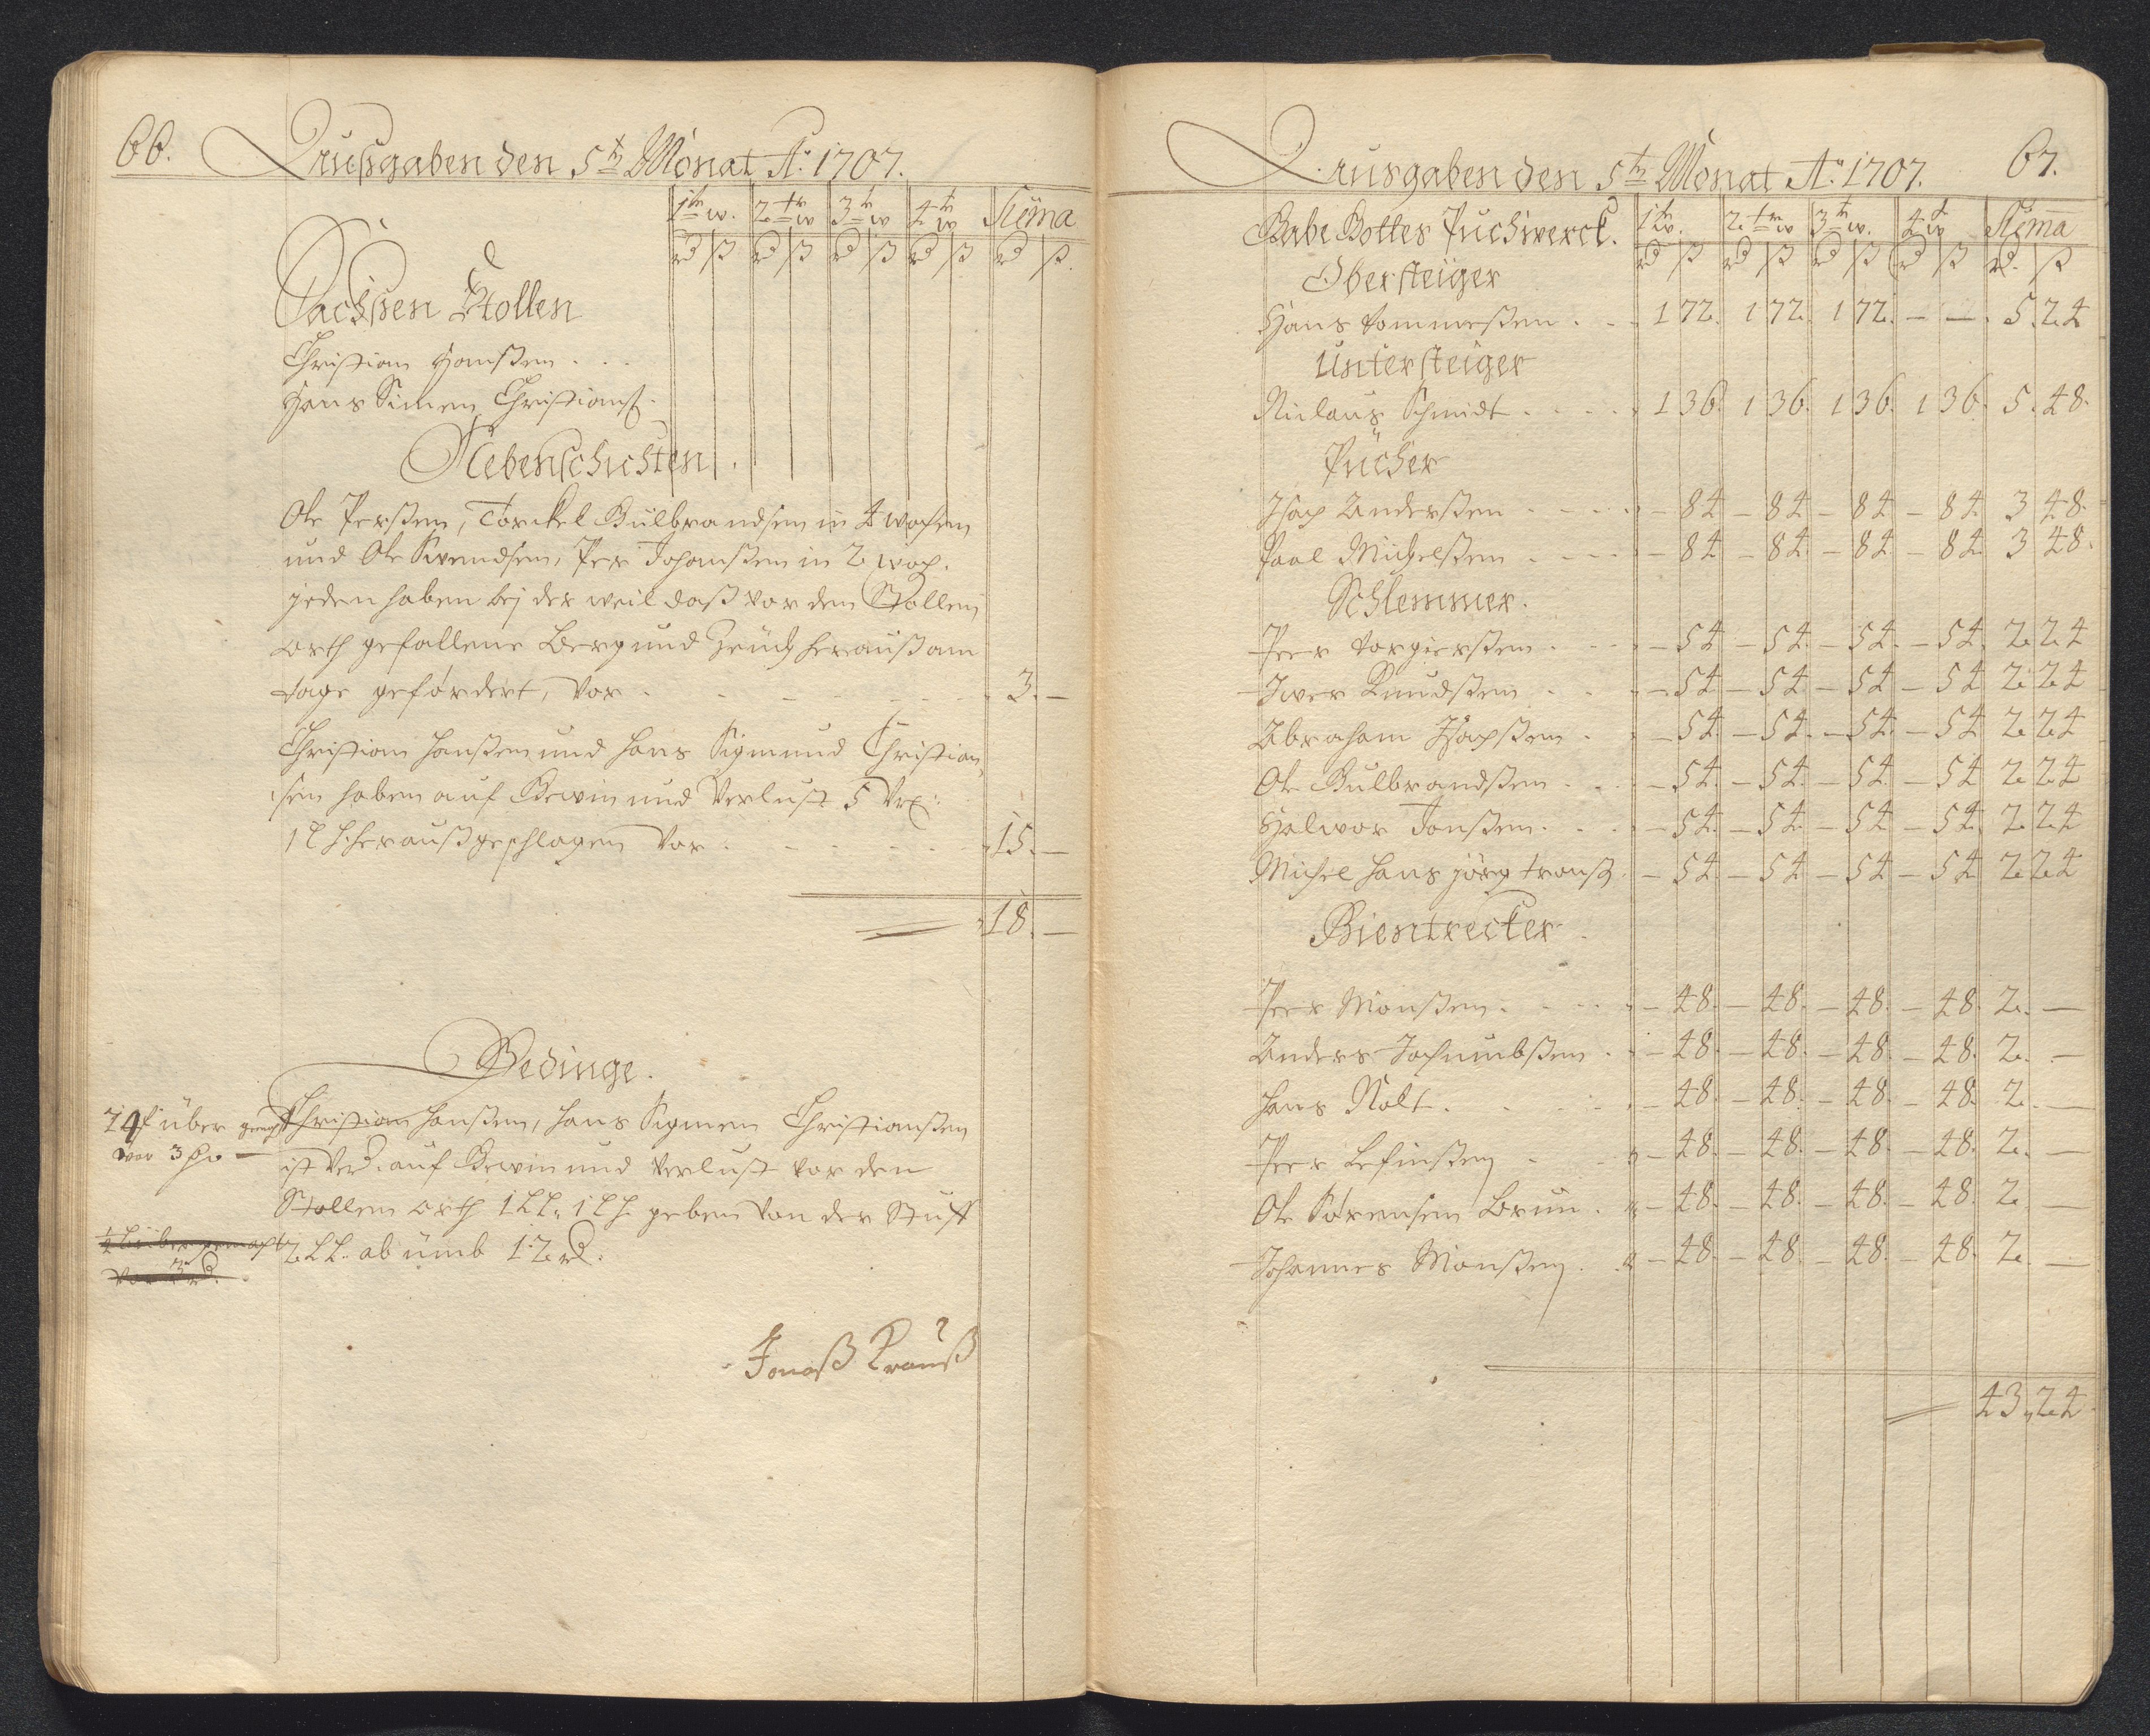 66. Ausgaben den 5tn Monat Ao: 1707.
1te w. 2te w 3te w 4te w Suma
rd ß rd ß rd ß rd ß rd ß.
Sachsen Stollen
Christian Hanßen . . .
Hans Simen Christians.
Nebenschichten.
Ole Perßen, Torckel Gulbrandsen in 4 wochen
und Ole Svendsen, Per Johanßen in 2 woch.
jeden haben bej der weil daß vor dem Stollen
orth gefallene Berg und Zeüch herauß am
tage gefördert, vor . - - - - 3. —
Christian Hanßen und Hans Sigmund Christian
sen haben auf Gewin und Verlust 5
1 L h. herauß geschlagen vor . - - - - 15. —
18. —
Bedinge.
Christian Hanßen, Hans Sigmen Christianßen
ist Verd. auf Gewin und Verlust vor den
Stollen orth 1 LL. 1 L h. geben von der Stuff
2 LL. ab ümb 12 rd.
über
vor 3
vor 3 rd.
Jonaß Krauß
Ausgaben den 5tn Monat Ao: 1707. 67.
Gabe Gottes Puchwerck. 1te w. 2te w 3te w. 4te w Suma
rd ß rd ß rd ß rd ß rd. ß
Obersteiger
Hans Tommeßen . - - 1 72. 1 72. 1 72. — — . 5. 24
Untersteiger
Niclaus Schmidt . - - - 1 36. 1 36. 1 36. 1 36. 5. 48.
Pücher
Isach Anderßen . - - - — 84 — 84 — 84 — 84 3 48.
Paal Michelßen . - - - — 84 — 84 — 84 — 84 3 48.
Schlemmer.
Peer Torgierßen . - - — 54 — 54. — 54. — 54. 2 24
Iver Knudßen . . . — 54 — 54. — 54 — 54 2 24
Abraham Isachßen . . — 54. — 54. — 54. — 54 2 24
Ole Gulbrandßen . . . — 54. — 54. — 54. — 54 2 24
Halwor Jonßen. . . — 54. — 54. — 54 — 54. 2 24
Michel Hans jörg — 54 — 54 — 54 — 54 2 24
Bientrecker
Peer Monßen. - - - — 48. — 48. — 48. — 48. 2. —
Anders Jochumbßen . . — 48. — 48. — 48. — 48. 2. —
Hans Nolt . . . . — 48. — 48. — 48. — 48. 2. —
Peer — 48. — 48. — 48. — 48. 2. —
Ole Sörensen Brun . — 48. — 48. — 48. — 48. 2 —
Johannes Monßen . — 48. — 48. — 48. — 48. 2. —
43, 24